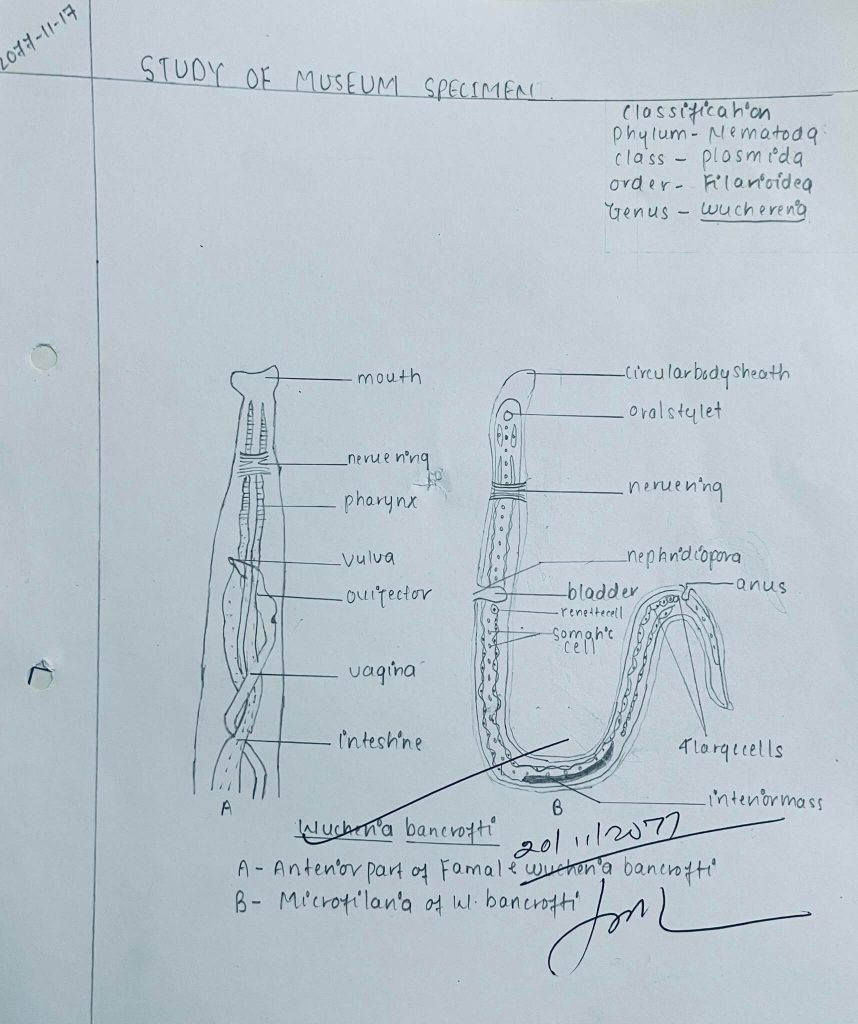 2077-11-17
STUDY OF MUSEUM SPECIMEN.
Classification
Phylum- Nematoda
class - plasmida
order- Filarioidea
Genus - Wuchereria
mouth
nervering
pharynx
vulva
ovijector
vagina
intestine
A
circularbodysheath
oralstylet
nervering
nephridiopora
bladder
anus
renettecell
somatic
cell
4largecells
interiormass
B
Wucheria bancrofti
20/11/2077
A - Anterior part of Famale wucheria bancrofti
B- Microfilaria of W. bancrofti